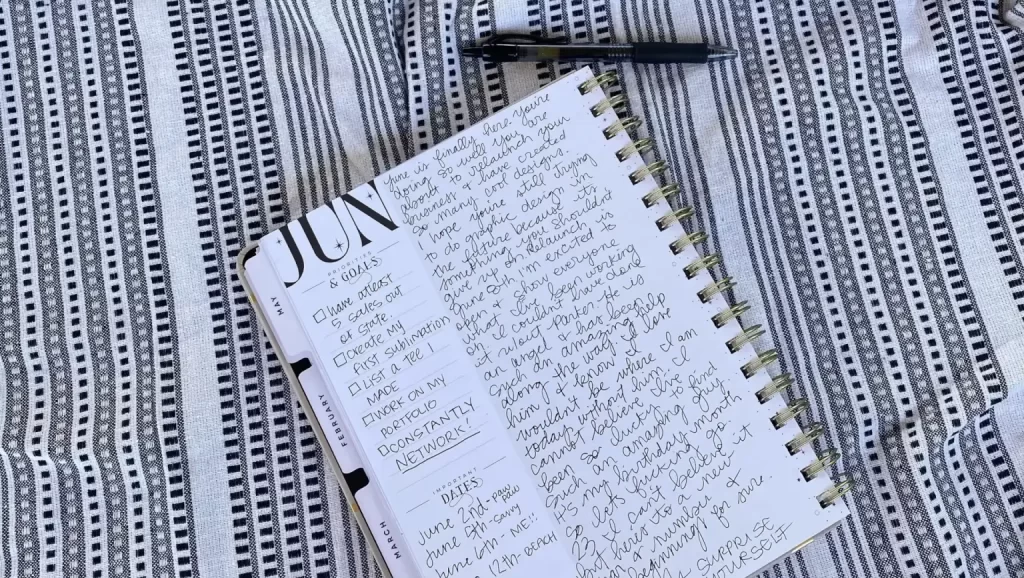 JUN
PRIORITIES
& GOALS
□ have atleast
5 sales out
of state
□ create my
first sublimation
□ LIST A TEE I
MADE
□ WORK ON MY
PORTFOLIO
□ CONSTANTLY
NETWORK!
IMPORTANT
DATES
June 2nd - paw paw
June 5th - savvy
June 6th - ME!!
12th - BEACH
MAY
FEBRUARY
MARCH
June is finally here. You're
doing so well. you are
about to relaunch your
business & have created
so many cool designs.
I hope you're still trying
to do graphic design in
the future because its
something you shouldn't
give up on. relaunch is
June 8th, I'm excited to
open & show everyone
what I've been working
on. I couldn't have done
it without Parker. He is
an angel & has been
such an amazing help
along the way. I love
him & know I
wouldn't be where I am
today without him. I
cannot believe I've
been so lucky to find
such an amazing guy.
it's my birthday month
so lets fucking go.
I can't believe it
but heres to a new
number &
beginnings for sure.
SURPRISE
YOURSELF